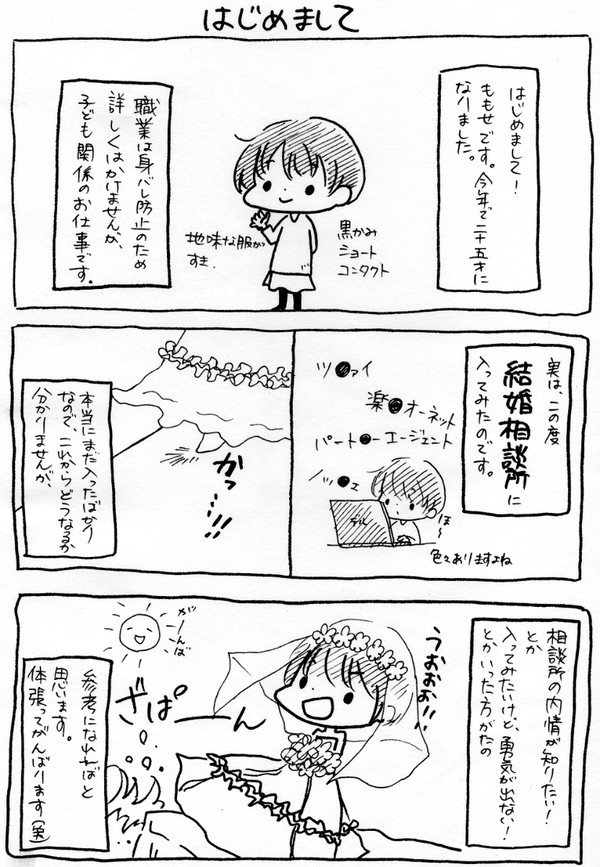 はじめまして
はじめまして！
ももせです。今年で二十五才に
なりました。
黒かみ
ショート
コンタクト
地味な服が
すき.
職業は身バレ防止のため
詳しくはかけませんが、
子ども関係のお仕事です。
実は、この度
結婚相談所に
入ってみたのです。
ツ●ァイ
楽●オーネット
パート●ーエージェント
ノッ●ェ
デル
ほ〜
色々ありますよね
かっ…!!!
本当にまだ入ったばかり
なので、これからどうなるか
分かりませんが、
相談所の内情が知りたい！
とか
入ってみたいけど、勇気が出ない！
とかいった方がたの
うおぉぉ!!
ざぱーーん
がーんば
参考になれればと
思います。
体張ってがんばります(実)